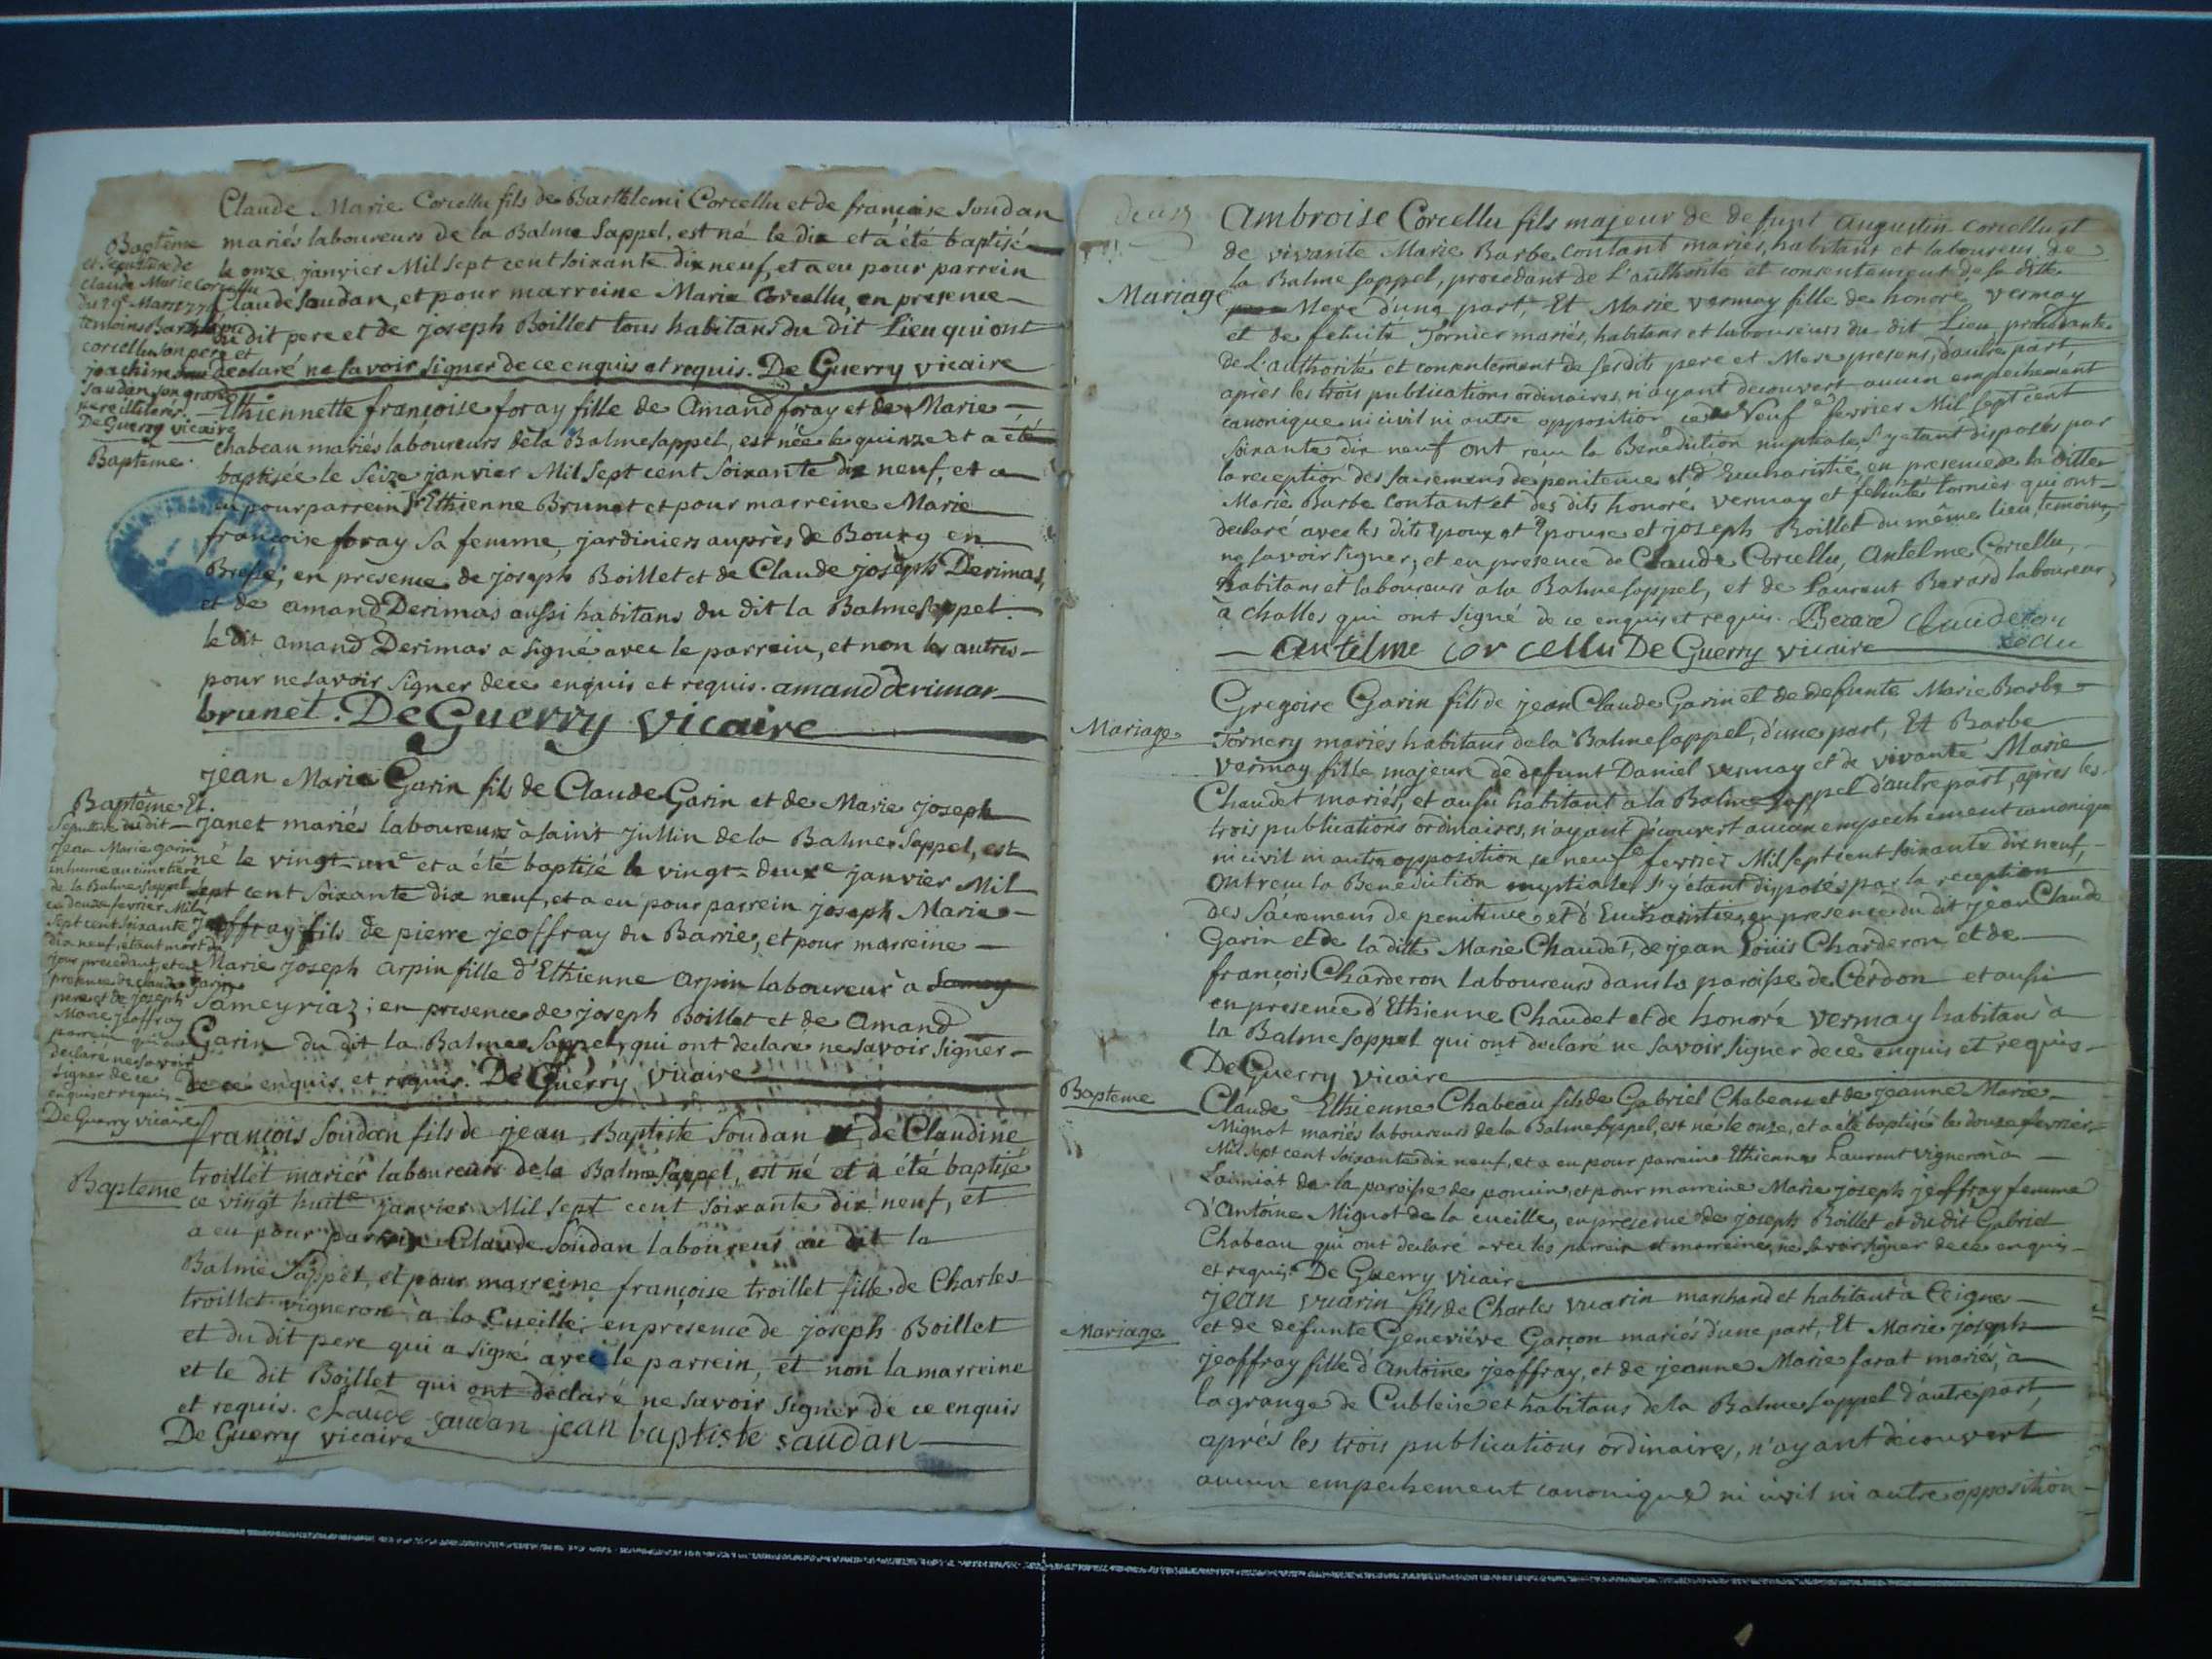 Claude Marie Corcellu fils de Barthlemi Corcellu et de françoise Soudan
mariés laboureurs de la Balme Sappel, est né le dix et a été baptisé
le onze janvier Mil sept cent soixante dix neuf, et a eu pour parrein
Claude Saudan, et pour marreine Marie Corcellu, en presence
du dit pere et de joseph Boillet tous habitans du dit Lieu qui ont
declaré ne savoir signer de ce enquis et requis. De Guerry vicaire
Baptême
et sepulture de
Claude Marie Corcellu
du 29e Mars 177
temoins Barthlemi
corcellu son pere et
joachim
Saudan son grand
pere illiterés.
De Guerry vicaire
Ethiennette françoise foray fille de Amand foray et de Marie
chabeau mariés laboureurs de la Balme Sappel, est née le quinze et a été
baptisée le seize janvier Mil sept cent soixante dix neuf, et a
eu pour parrein Ethienne Brunet et pour marreine Marie
françoise foray sa femme, jardiniers auprès de Bourg en
Bresse; en presence de joseph Boillet et de Claude joseph Derimas,
et de amand Derimas aussi habitans du dit la Balme Sappel.
le dit amand Derimas a signé avec le parrein, et non les autres
pour ne savoir signer de ce enquis et requis. amand derimas
brunet. De Guerry vicaire
Baptême.
jean Marie Garin fils de Claude Garin et de Marie joseph
janet mariés laboureurs à saint jullin de la Balme Sappel, est
né le vingt-une et a été baptisé le vingt-deuxe janvier Mil
sept cent soixante dix neuf, et a eu pour parrein joseph Marie
jeoffray fils de pierre jeoffray du Barrie, et pour marreine
Marie joseph arpin fille d'Ethienne arpin laboureur à Samey
Sameyriaz; en presence de joseph Boillet et de Amand
Garin du dit la Balme Sappel, qui ont declaré ne savoir signer
de ce enquis et requis. De Guerry vicaire
Baptême Et.
Sepulture du dit
jean Marie garin
inhumé au cimetiere
de la Balme Sappel
ce douze fevrier Mil
sept cent soixante
dix neuf, étant mort le
jour precedant, et en
presence de claude garin
pere et de joseph
Marie jeoffray
parrein qui ont
declaré ne savoir
signer de ce
enquis et requis
De Guerry vicaire
françois Soudan fils de jean Baptiste Soudan et de Claudine
troillet mariés laboureurs de la Balme Sappel, est né et a été baptisé
ce vingt huite janvier Mil sept cent soixante dix neuf, et
a eu pour parrein Claude Soudan laboureur au dit la
Balme Sappel, et pour marreine françoise troillet fille de Charles
troillet vigneron à la Cueille; en presence de joseph Boillet
et du dit pere qui a signé avec le parrein, et non la marreine
et le dit Boillet qui ont déclaré ne savoir signer de ce enquis
et requis. claude saudan jean baptiste saudan
De Guerry vicaire
Bapteme
deux
Ambroise Corcellu fils majeur de defunt augustin corcellu et
de vivante Marie Barbe Contant mariés, habitans et laboureurs de
la Balme Sappel, procedant de l'authorité et consentement de sa dite
Mere d'une part, Et Marie vermay fille de honoré vermay
et de felicité Tornier mariés, habitans et laboureurs du dit Lieu procedante
de L'authorité et consentement de ses dits pere et Mere presens, d'autre part,
après les trois publications ordinaires, n'ayant decouvert aucun empechement
canonique ni civil ni autre opposition ce Neufe fevrier Mil sept cent
soixante dix neuf ont reçu la Benediction nuptiale, s'y etant disposés par
la reception des sacremens de penitence et d'Eucharistie, en presence de la ditte
Marie Barbe Contant et des dits honoré vermay et felicité tornier qui ont
declaré avec les dits époux et épouse et joseph Boillet du même lieu, temoins,
ne savoir signer, et en presence de Claude Corcellu, Antelme Corcellu,
habitans et laboureurs à la Balme Sappel, et de Laurent Berard laboureur
à challes qui ont signé de ce enquis et requis. Berard Claude cor
celu
Antelme cor cellu De Guerry vicaire
Mariage
Gregoire Garin fils de jean Claude Garin et de defunte Marie Barbe
Tornery mariés habitans de la Balme Sappel, d'une part, Et Barbe
vermay fille majeure de defunt Daniel vermay et de vivante Marie
Chaudet mariés, et aussi habitant à la Balme Sappel d'autre part, après les
trois publications ordinaires, n'ayant découvert aucun empechement canonique
ni civil ni autre opposition ce neufe fevrier Mil sept cent soixante dix neuf,
ont reçu la Benediction nuptiale, s'y étant disposés par la reception
des Sacremens de penitence et d'Eucharistie, en presence du dit jean Claude
Garin et de la ditte Marie Chaudet, de jean Louis Charderon et de
françois Charderon laboureurs dans la paroisse de Cerdon et aussi
en presence d'Ethienne Chaudet et de honoré vermay habitans à
la Balme Sappel qui ont declaré ne savoir signer de ce enquis et requis
De Guerry vicaire
Mariage
Claude Ethienne Chabeau fils de Gabriel Chabeau et de jeanne Marie
Mignot mariés laboureurs de la Balme Sappel, est né le onze, et a été baptisé le douze fevrier
Mil sept cent soixante dix neuf, et a eu pour parrein Ethienne Laurent vigneron à
de la paroisse de poncin, et pour marreine Marie joseph jeoffray femme
d'Antoine Mignot de la cueille, en presence de joseph Boillet et du dit Gabriel
Chabeau qui ont declaré avec les parrein et marreine, ne savoir signer de ce enquis
et requis. De Guerry vicaire
Bapteme
jean vuarin fils de Charles vuarin marchand et habitant à Leignes
et de defunte Geneviéve Garçon mariés d'une part, Et Marie joseph
jeoffray fille d'Antoine jeoffray, et de jeanne Marie farat mariés, à
la grange de Cubleise et habitans de la Balme Sappel d'autre part,
après les trois publications ordinaires, n'ayant découvert
aucun empechement canonique ni civil ni autre opposition
Mariage